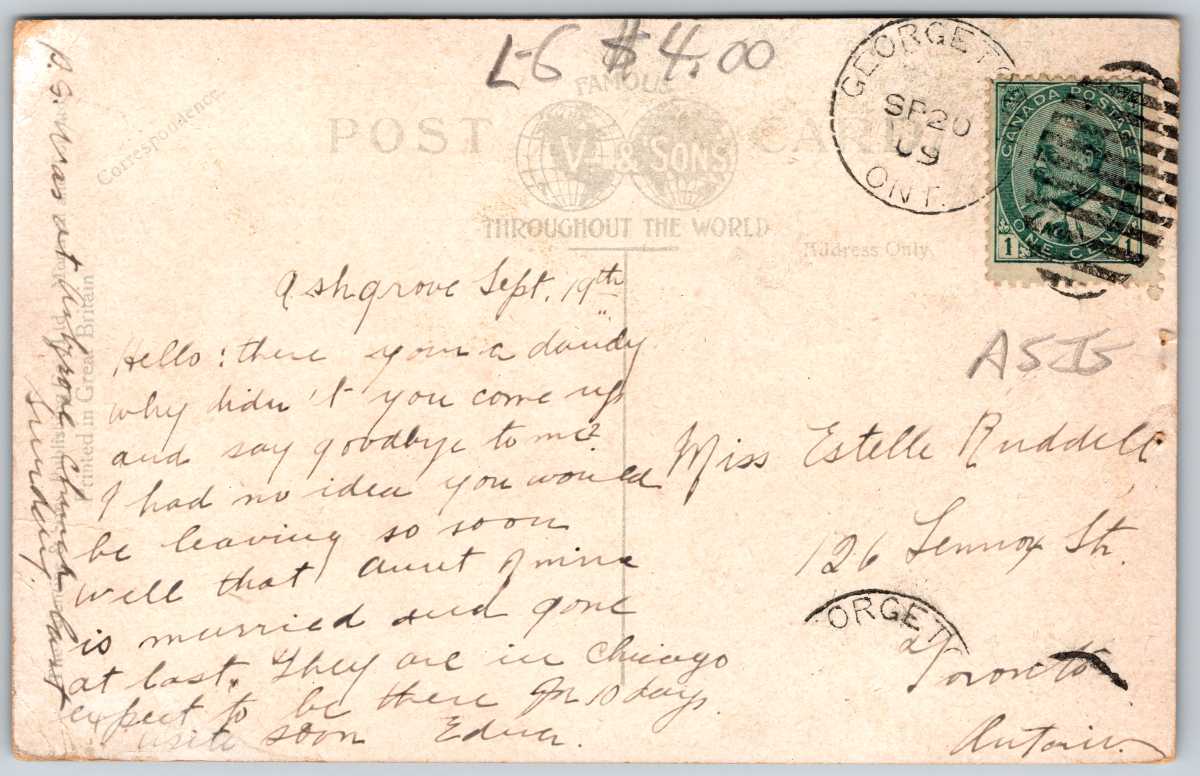 L-6 $4.00
FAMOUS
POST CARD
V & SONS
THROUGHOUT THE WORLD
Correspondence.
Address Only.
GEORGET
SP 20
09
ONT.
CANADA POSTAGE
1 ONE CENT 1
AS IS
Ashgrove Sept. 19th
Hello: there your a dandy
why didn't you come up
and say goodbye to me?
I had no idea you would
be leaving so soon
well that aunt of mine
is married and gone
at last. They are in Chicago
expect to be there for 10 days.
write soon Edna.
Miss Estelle Ruddell
126 Lennox St.
Toronto
Ontario
ORGET
Was at Ashgrove Church last
Sunday.
Printed in Great Britain